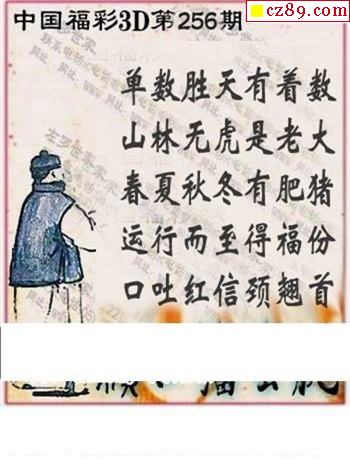 cz89.com
中国福彩3D第256期
单数胜天有着数
山林无虎是老大
春夏秋冬有肥猪
运行而至得福份
口吐红信颈翘首